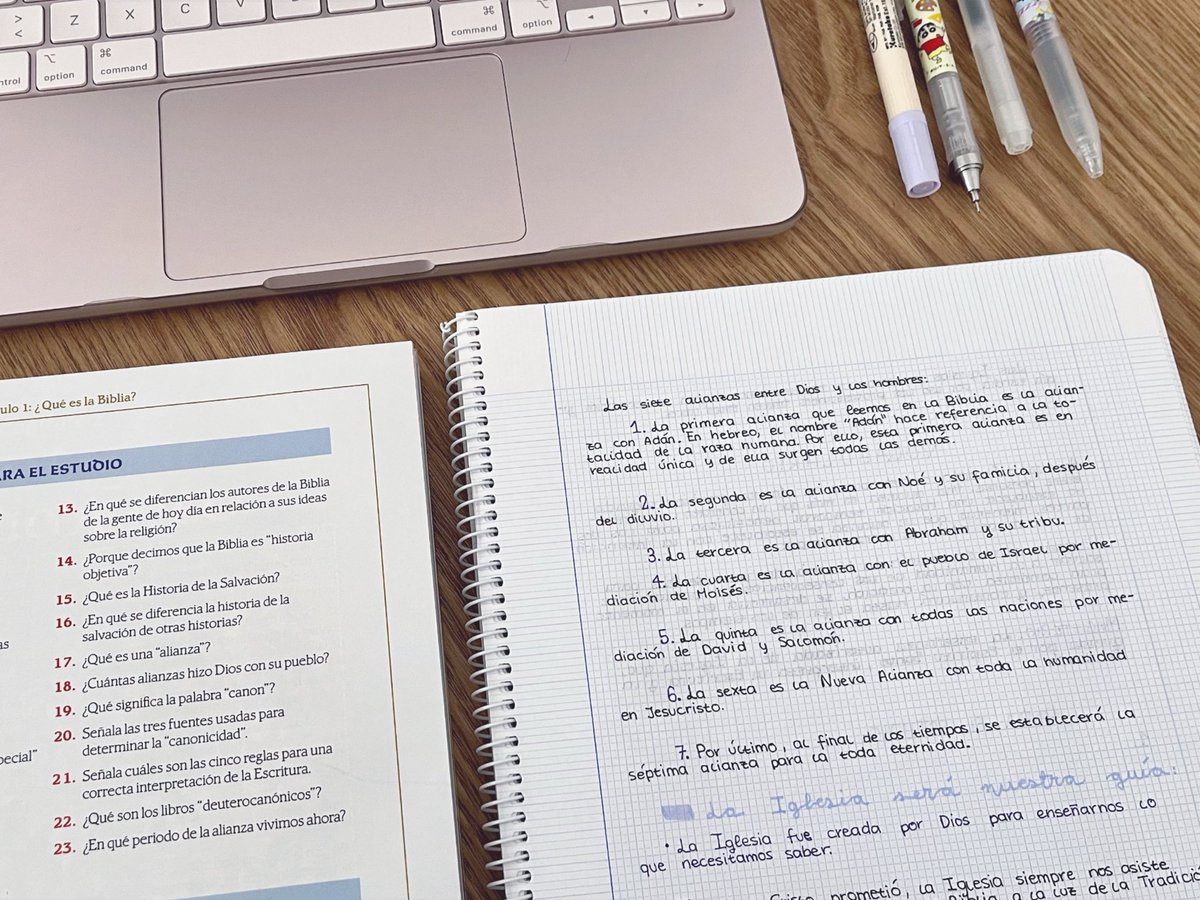 >
<
Z
X
C
V
control
⌥
option
⌘
command
⌘
command
⌥
option
◂
▾
▸
ulo 1: ¿Qué es la Biblia?
ARA EL ESTUDIO
13. ¿En qué se diferencian los autores de la Biblia
de la gente de hoy día en relación a sus ideas
sobre la religión?
14. ¿Porque decimos que la Biblia es “historia
objetiva”?
15. ¿Qué es la Historia de la Salvación?
16. ¿En qué se diferencia la historia de la
salvación de otras historias?
17. ¿Qué es una “alianza”?
18. ¿Cuántas alianzas hizo Dios con su pueblo?
19. ¿Qué significa la palabra “canon”?
20. Señala las tres fuentes usadas para
determinar la “canonicidad”.
21. Señala cuáles son las cinco reglas para una
correcta interpretación de la Escritura.
22. ¿Qué son los libros “deuterocanónicos”?
23. ¿En qué periodo de la alianza vivimos ahora?
as
pecial”
Las siete alianzas entre Dios y los hombres:
1. La primera alianza que leemos en la Biblia es la alian-
za con Adán. En hebreo, el nombre “Adán” hace referencia a la to-
talidad de la raza humana. Por ello, esta primera alianza es en
realidad única y de ella surgen todas las demás.
2. La segunda es la alianza con Noé y su familia, después
del diluvio.
3. La tercera es la alianza con Abraham y su tribu.
4. La cuarta es la alianza con el pueblo de Israel por me-
diación de Moisés.
5. La quinta es la alianza con todas las naciones por me-
diación de David y Salomón.
6. La sexta es la Nueva Alianza con toda la humanidad
en Jesucristo.
7. Por último, al final de los tiempos, se establecerá la
séptima alianza para la toda eternidad.
La Iglesia será nuestra guía:
• La Iglesia fue creada por Dios para enseñarnos lo
que necesitamos saber.
prometió, la Iglesia siempre nos asiste
a la luz de la Tradició